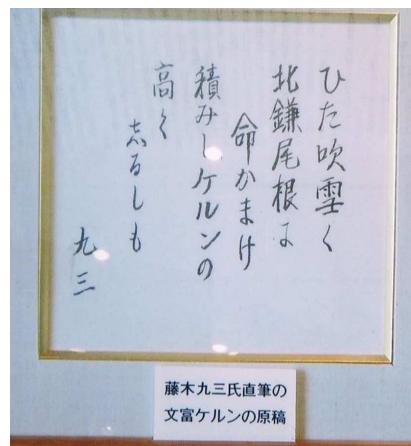 ひた吹雪く
北鎌尾根に
命かまけ
積みしケルンの
高く
志るしも
九三
藤木九三氏直筆の
文富ケルンの原稿